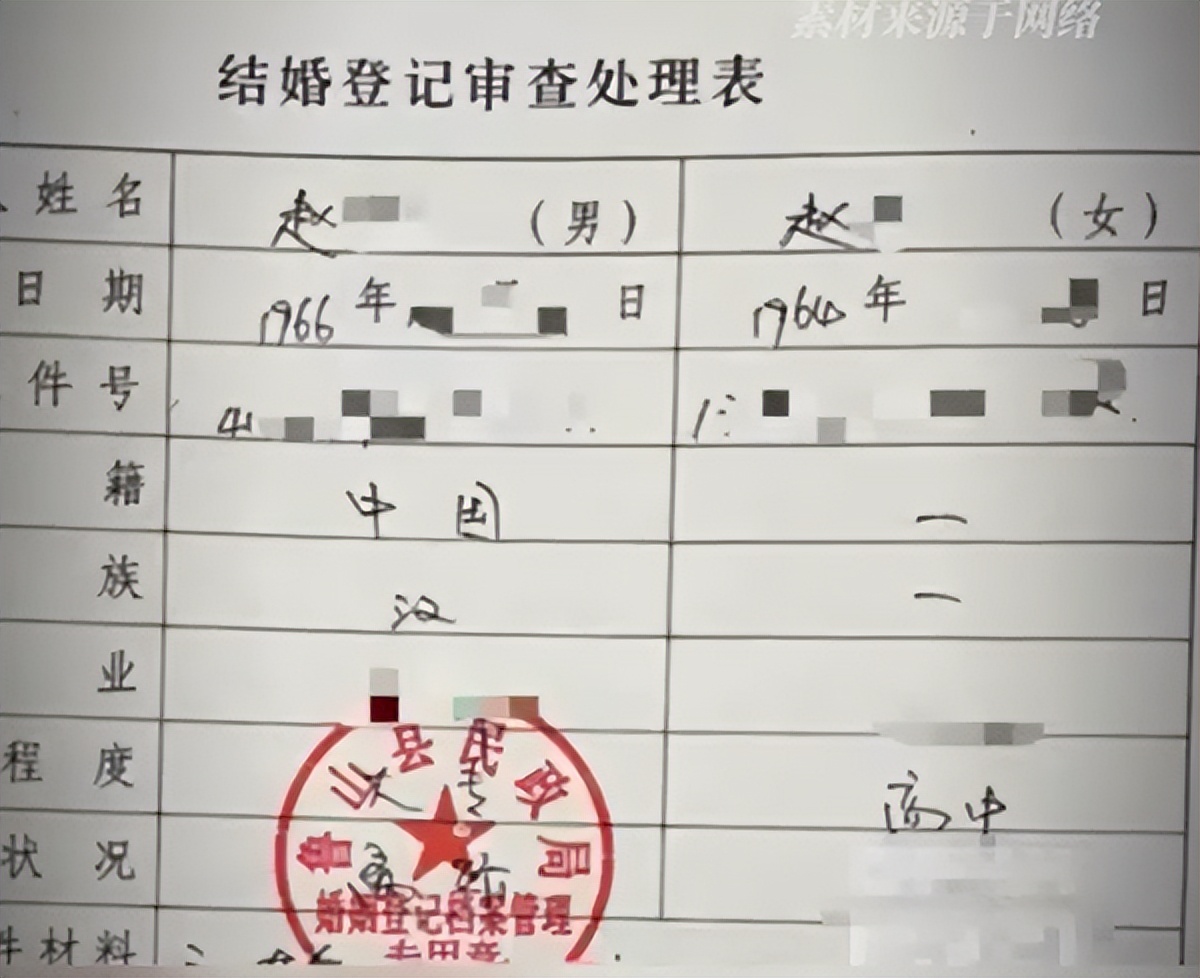 素材来源于网络
结婚登记审查处理表
姓名 赵 (男) 赵 (女)
日期 1966年 日 1964年 日
件号 41
籍 中国 一
族 汉 一
业
程度 大专 高中
状况 离婚
件材料
鲁山县民政局
婚姻登记档案管理
专用章